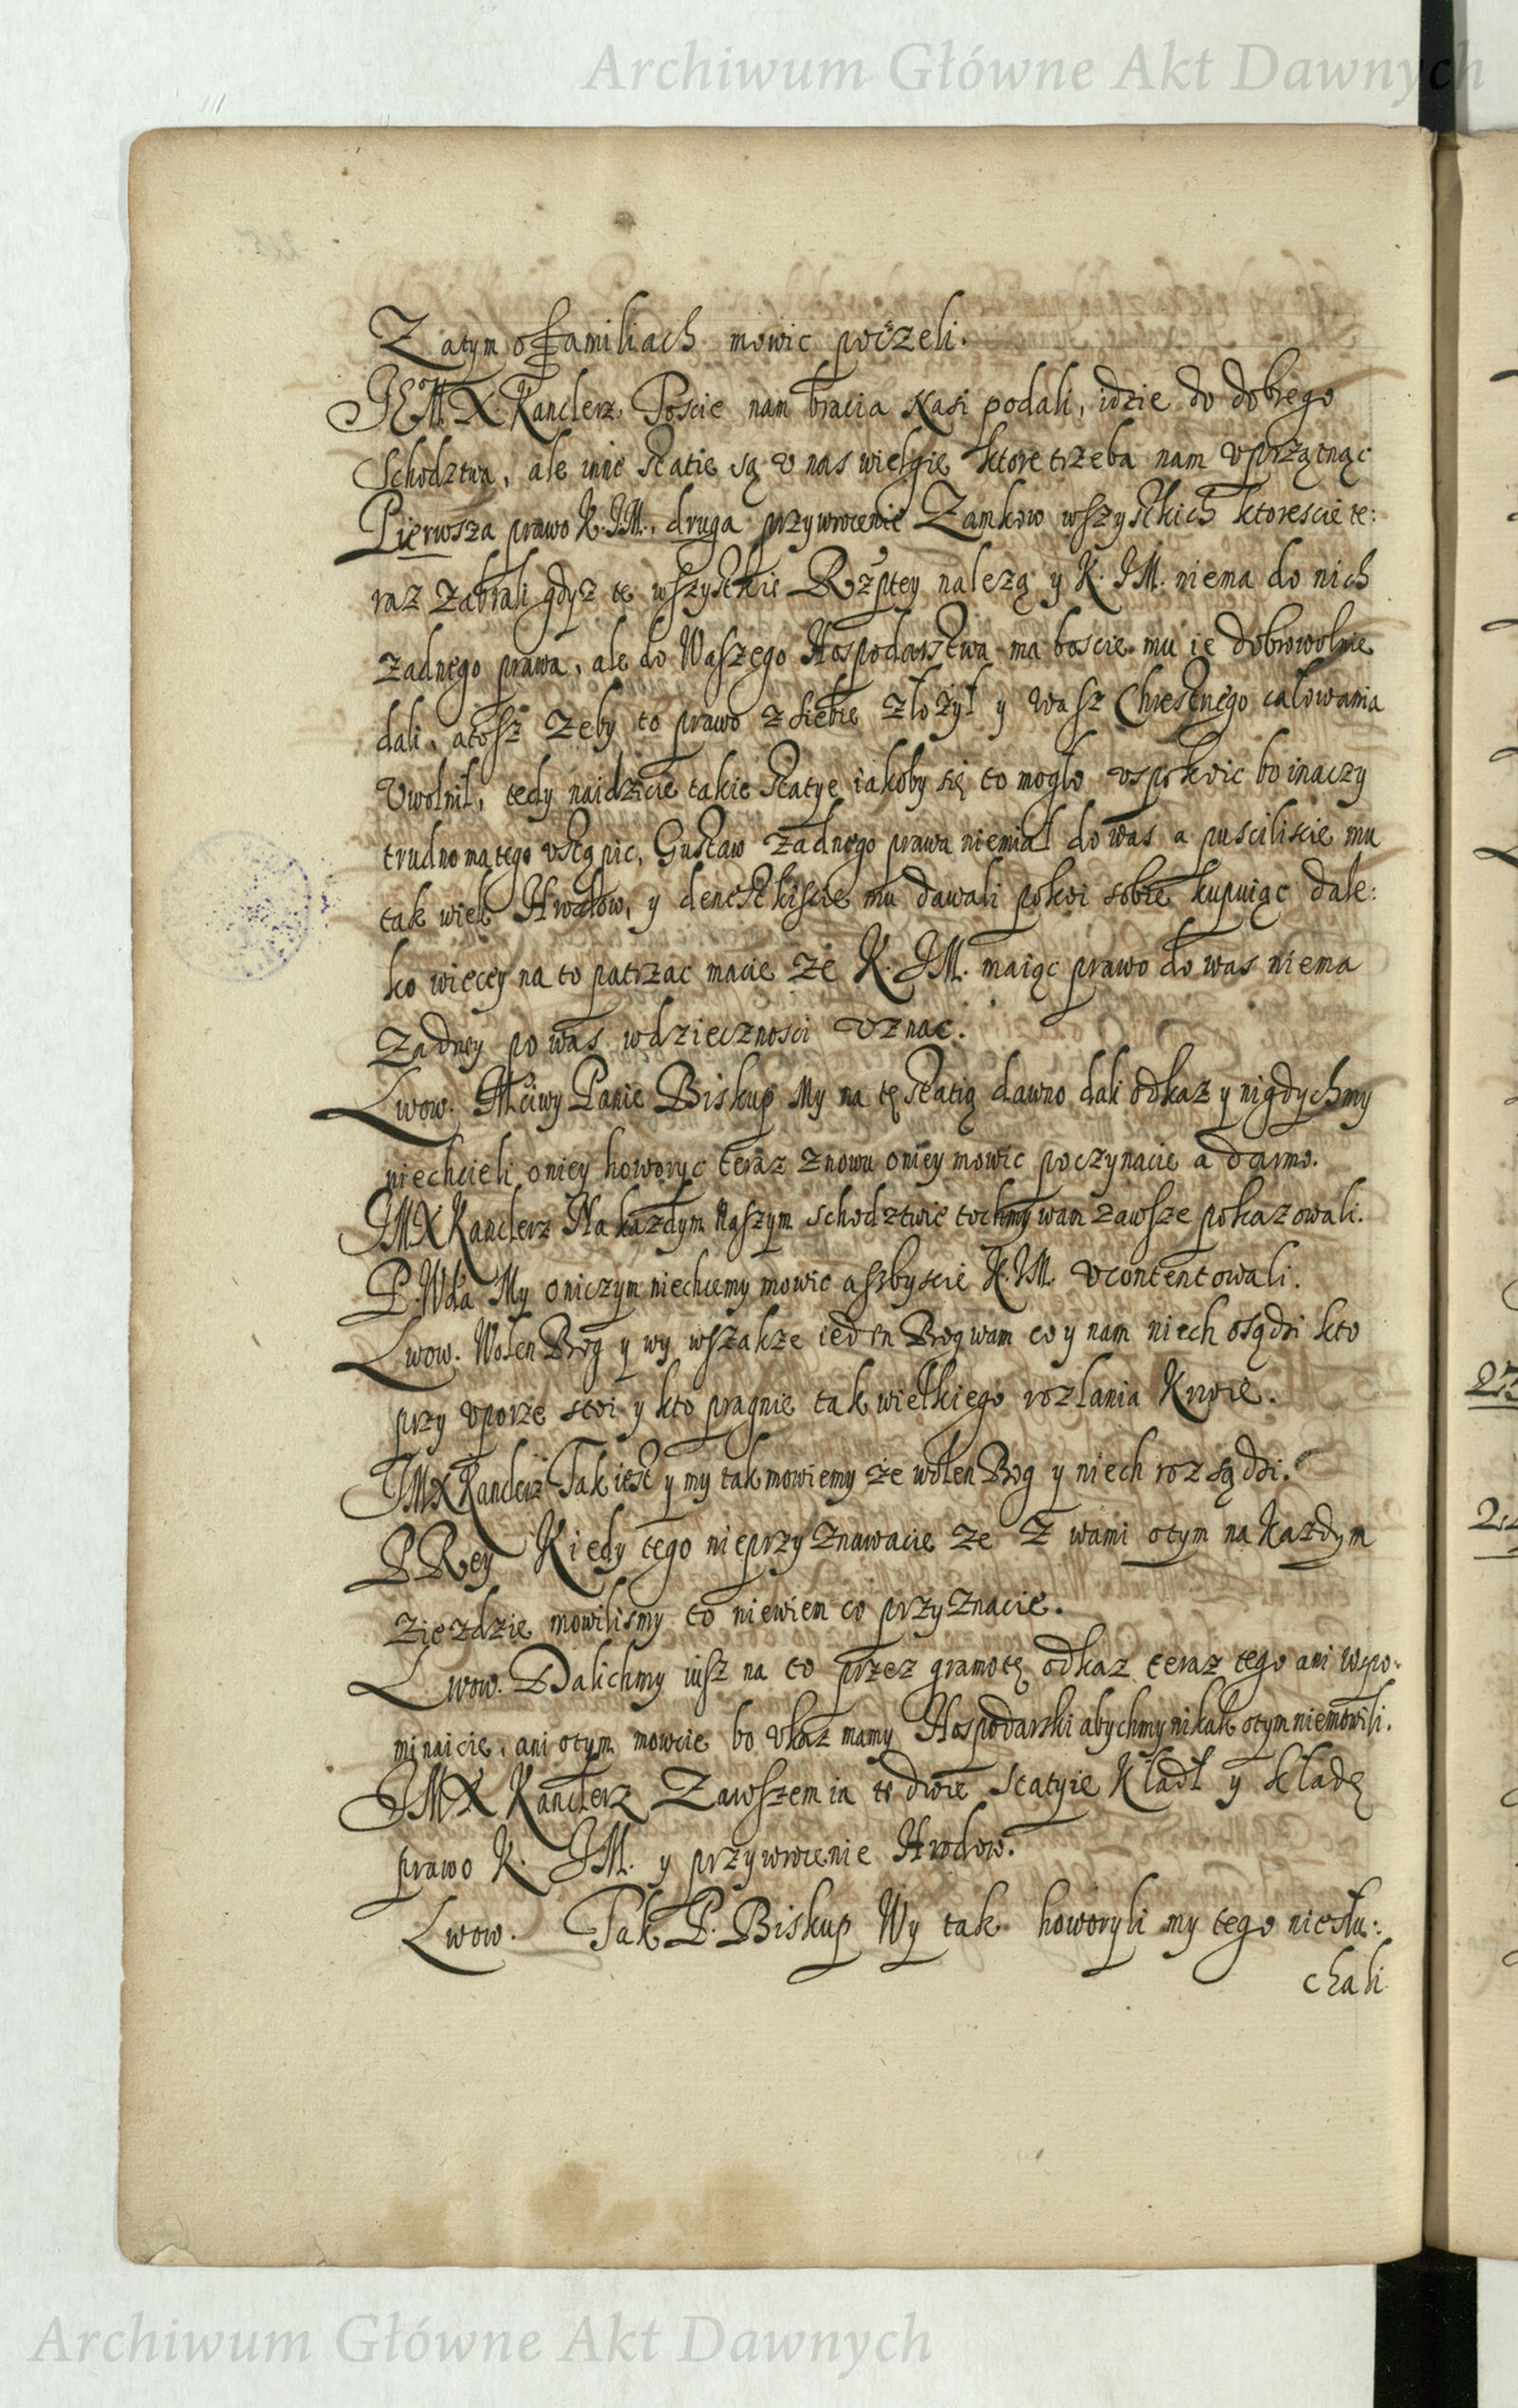 Archiwum Główne Akt Dawnych
Zatym o Familiach mowic poczeli.
JEM. X. Kanclerz. Poscie nam bracia Nasi podali, idzie do dobrego
Schodztwa, ale inne statie są v nas wielgie ktore trzeba nam vprzątnąc
Pierwsza prawo K. JM. druga przywrocenie Zamkow wszystkich ktorescie te:
raz zabrali gdyz te wszystkie Rzptey nalezą y K. JM. niema do nich
zadnego prawa, ale do Waszego Hospodarstwa ma boscie mu ie dobrowolnie
dali, atosz zeby to prawo z siebie złożył y wasz Chrestnego całowania
Vwolnił, tedy naidzicie takie statye iakoby się to mogło vspokoic bo inaczy
trudno ma tego vstąpic, Gustaw zadnego prawa niemiał do was a puscililiscie mu
tak wiele Hrodow, y denestkiscie mu dawali pokoi sobie kupuiąc dale:
ko więcey na to patrzac macie że K. JM. maiąc prawo do was niema
Zadney po was wdziecznosci vznac.
Lwow. Mciwy Panie Biskup My na tę statią dawno dali odkaz y nigdychmy
niechcieli o niey howoryc teraz znowu oniey mowic poczynacie a darmo.
JMX Kanclerz Na kazdym Naszym schodztwie tochmy wam zawsze pokazowali.
P. Wda My oniczym niechcemy mowic aszbyscie K. JM. vcontentowali.
Lwow. Wolen Bog y wy wszakze ieden Bog wam co y nam niech osądzi kto
przy vporze stoi y kto pragnie tak wielkiego rozlania Krwie.
JMX Kanclerz Tak iest y my tak mowiemy że wolen Bog y niech rozsądzi.
P Rey Kiedy tego nieprzyznawacie ze z wami otym na kazdym
zieżdzie mowilismy to niewiem co przyznacie.
Lwow. Dalichmy iusz na to przez gramotę odkaz teraz tego ani wspo:
minaicie, ani otym mowcie bo vkaz mamy Hospodarski abychmy nikak otym niemowili.
JMX Kanclerz Zawszem ia te dwie statyie kładł y kładę
prawo K. JM. y przywrocenie Hrodow.
Lwow. Tak P. Biskup Wy tak howoryli my tego niesłu:
chali
Archiwum Główne Akt Dawnych